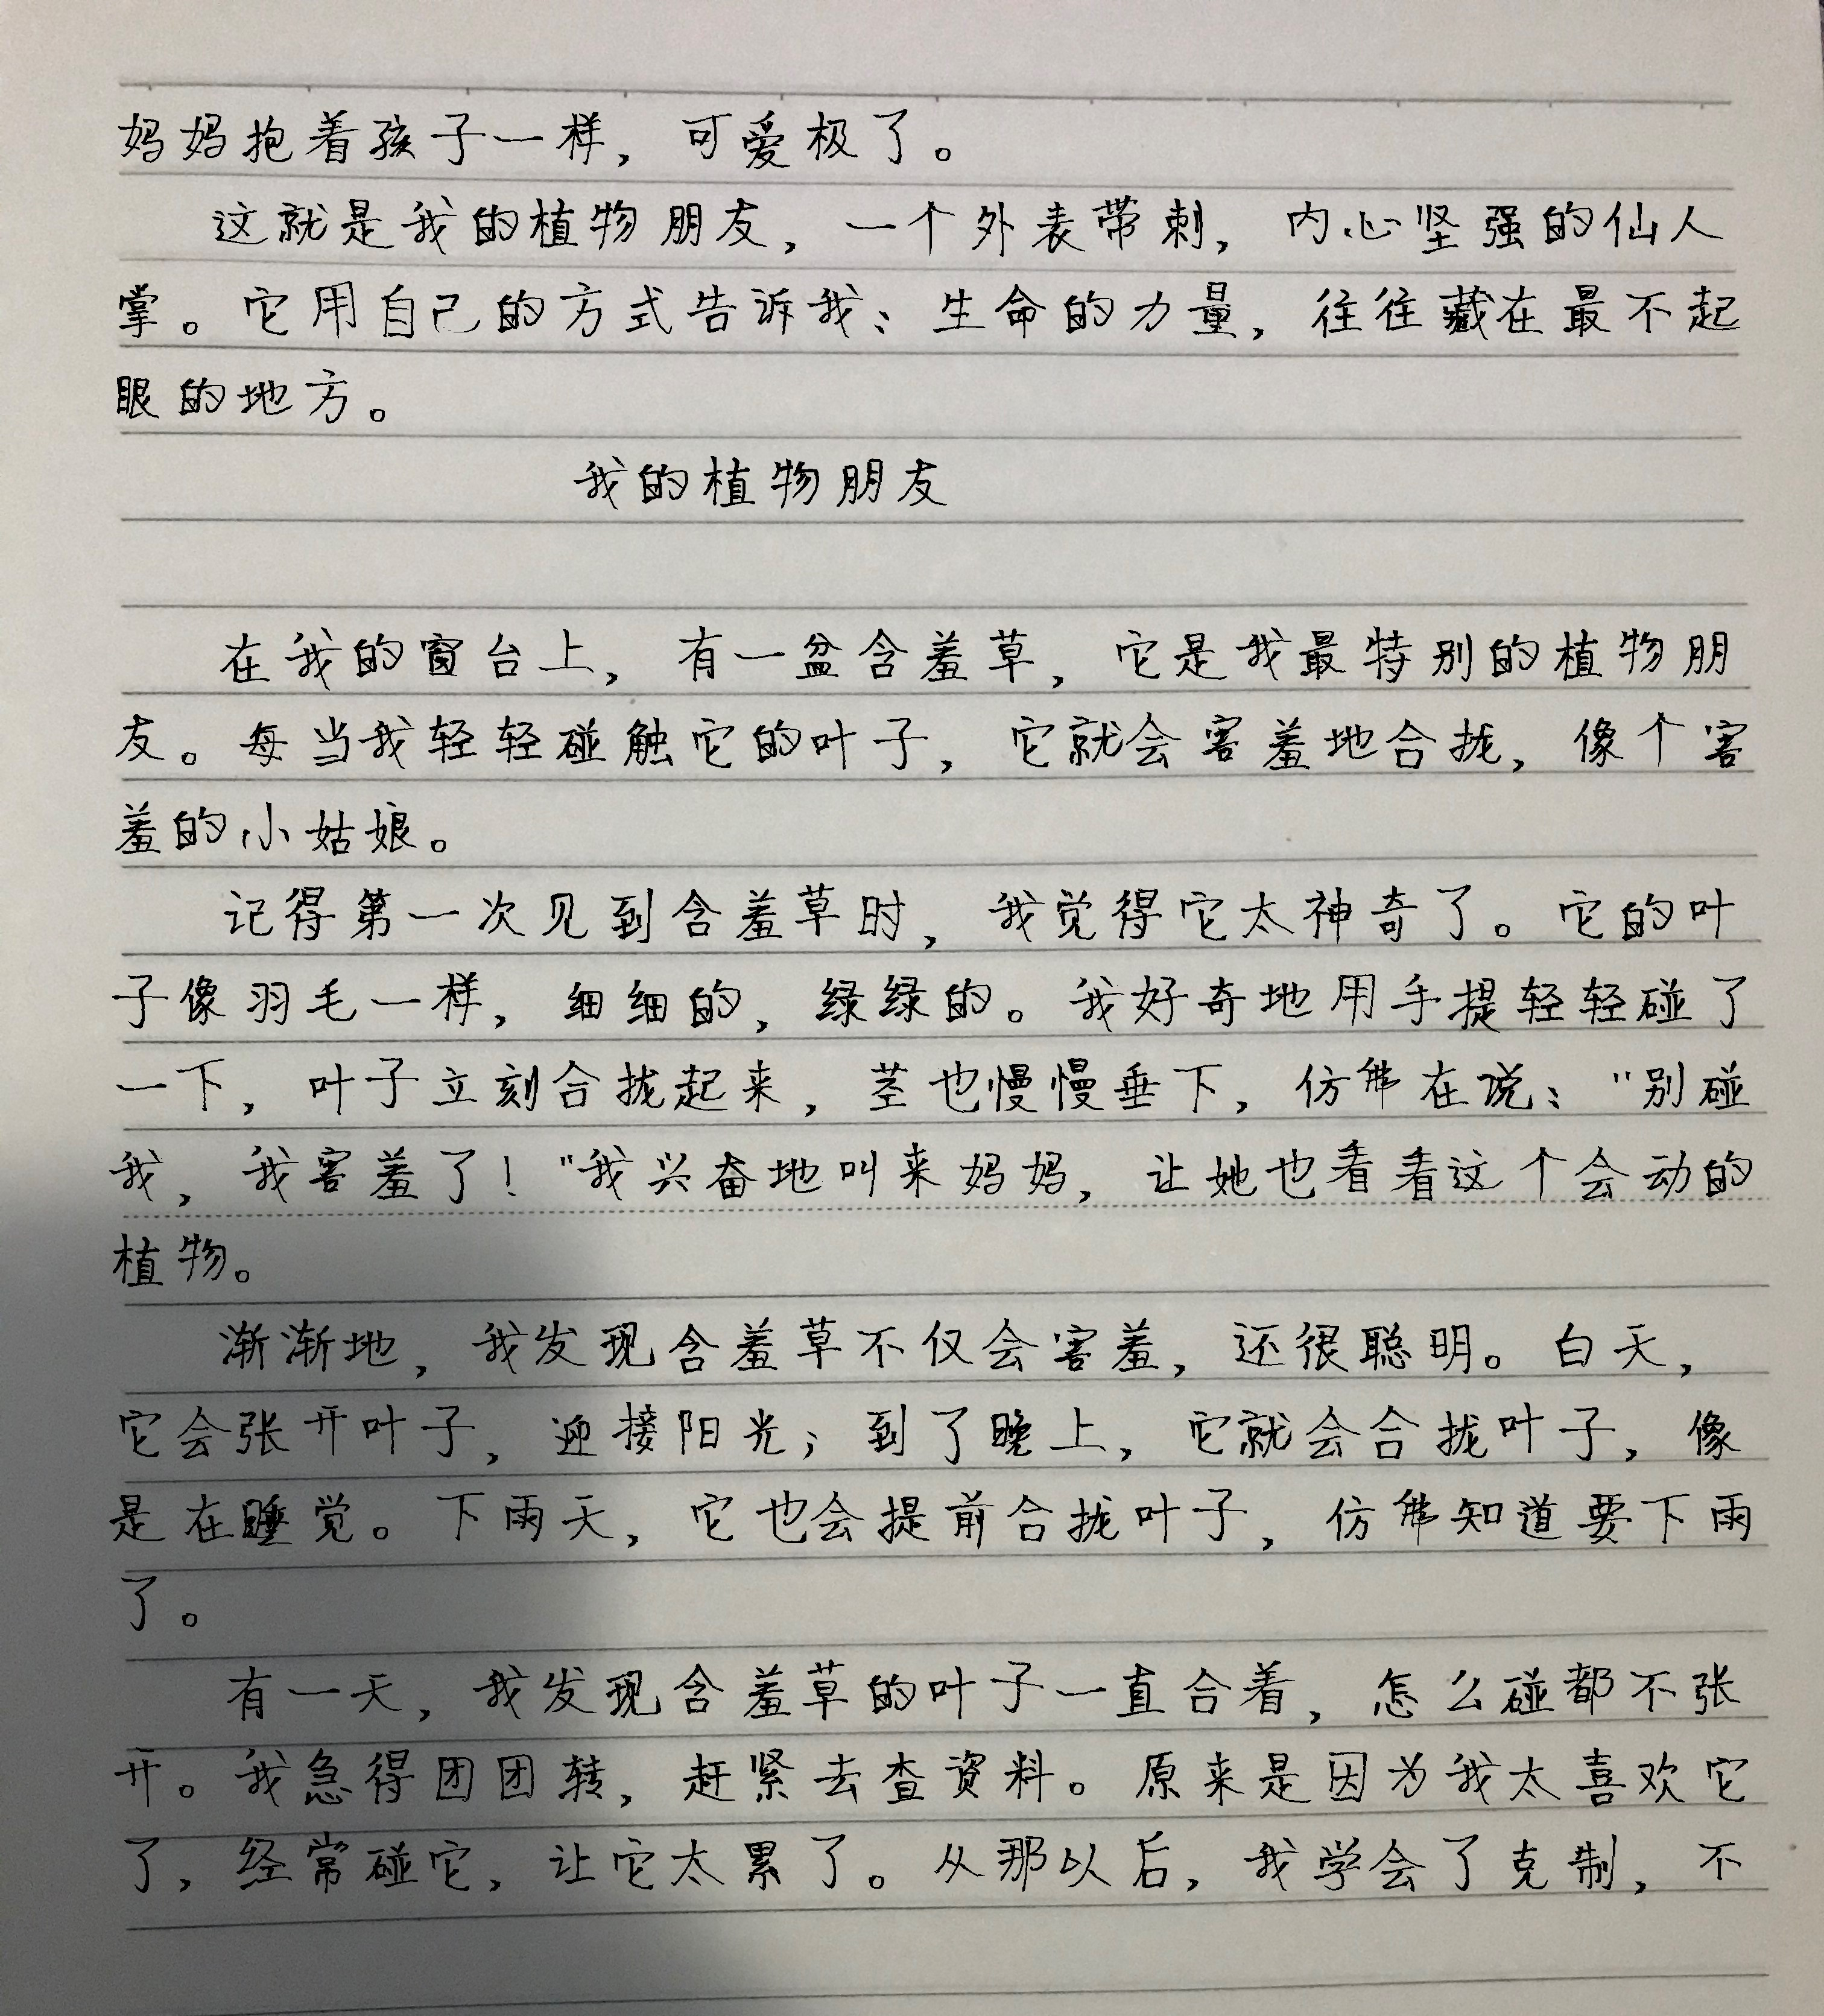 妈妈抱着孩子一样，可爱极了。
这就是我的植物朋友，一个外表带刺，内心坚强的仙人
掌。它用自己的方式告诉我：生命的力量，往往藏在最不起
眼的地方。
我的植物朋友
在我的窗台上，有一盆含羞草，它是我最特别的植物朋
友。每当我轻轻碰触它的叶子，它就会害羞地合拢，像个害
羞的小姑娘。
记得第一次见到含羞草时，我觉得它太神奇了。它的叶
子像羽毛一样，细细的，绿绿的。我好奇地用手提轻轻碰了
一下，叶子立刻合拢起来，茎也慢慢垂下，仿佛在说："别碰
我，我害羞了！"我兴奋地叫来妈妈，让她也看看这个会动的
植物。
渐渐地，我发现含羞草不仅会害羞，还很聪明。白天，
它会张开叶子，迎接阳光；到了晚上，它就会合拢叶子，像
是在睡觉。下雨天，它也会提前合拢叶子，仿佛知道要下雨
了。
有一天，我发现含羞草的叶子一直合着，怎么碰都不张
开。我急得团团转，赶紧去查资料。原来是因为我太喜欢它
了，经常碰它，让它太累了。从那以后，我学会了克制，不